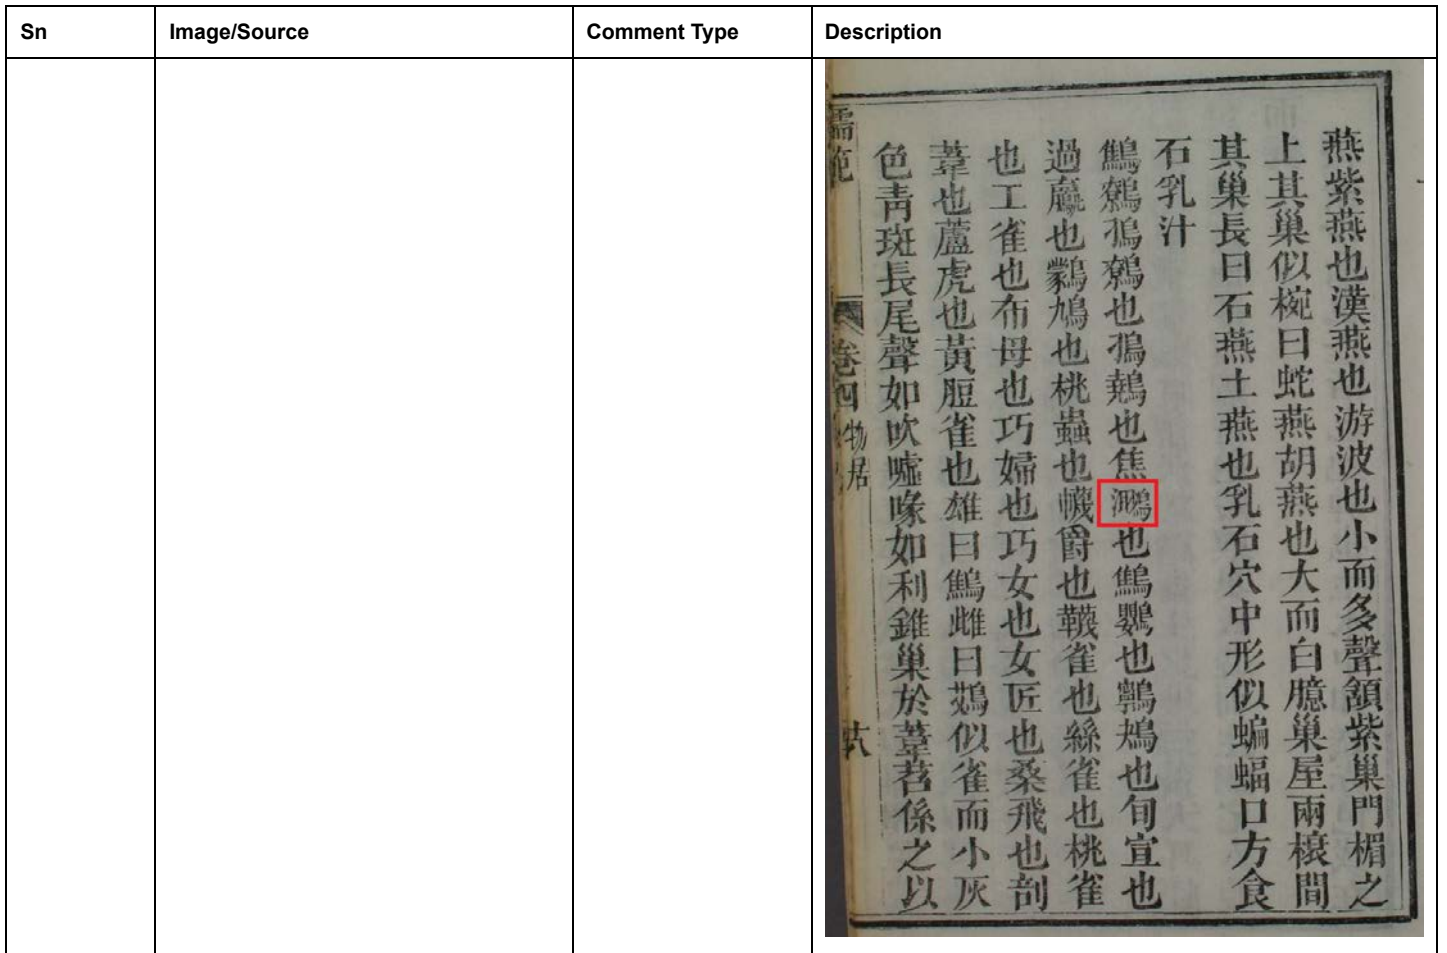 Sn
Image/Source
Comment Type
Description
燕紫燕也漢燕也游波也小而多聲頷紫巢門楣之
上其巢似椀曰蛇燕胡燕也大而白臆巢屋兩榱間
其巢長曰石燕土燕也乳石穴中形似蝙蝠口方食
石乳汁
也焦也也也旬宣也
過蠃也鸏鳩也桃蟲也幭爵也韈雀也絲雀也桃雀
也工雀也布母也巧婦也巧女也女匠也桑飛也剖
葦也蘆虎也黃脰雀也雄曰鷦雌曰鴱似雀而小灰
色青斑長尾聲如吹噓喙如利錐巢於葦苕係之以
卷四
物居